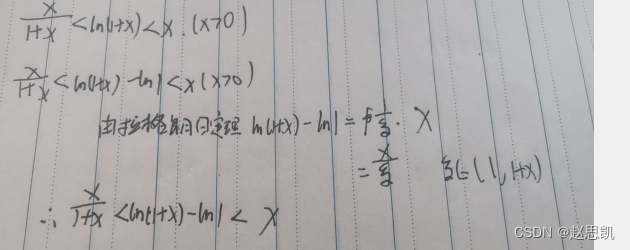 x/(1+x) < ln(1+x) < x. (x>0)
x/(1+x) < ln(1+x) - ln1 < x (x>0)
由拉格朗日中值定理 ln(1+x) - ln1 = 1/ξ · x
= x/ξ ξ∈(1, 1+x)
∴ x/(1+x) < ln(1+x) - ln1 < x
CSDN @赵思凯